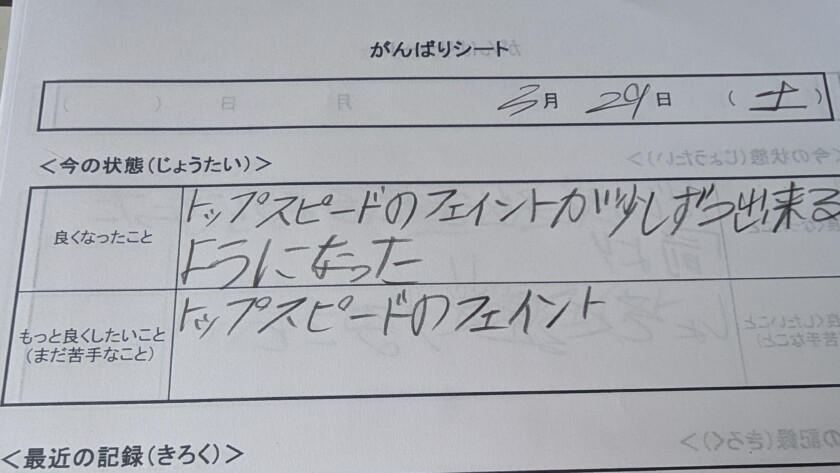 がんばりシート
3月 29日 (土)
<今の状態(じょうたい)>
良くなったこと
トップスピードのフェイントが少しずつ出来る
ようになった
もっと良くしたいこと
(まだ苦手なこと)
トップスピードのフェイント
<最近の記録(きろく)>